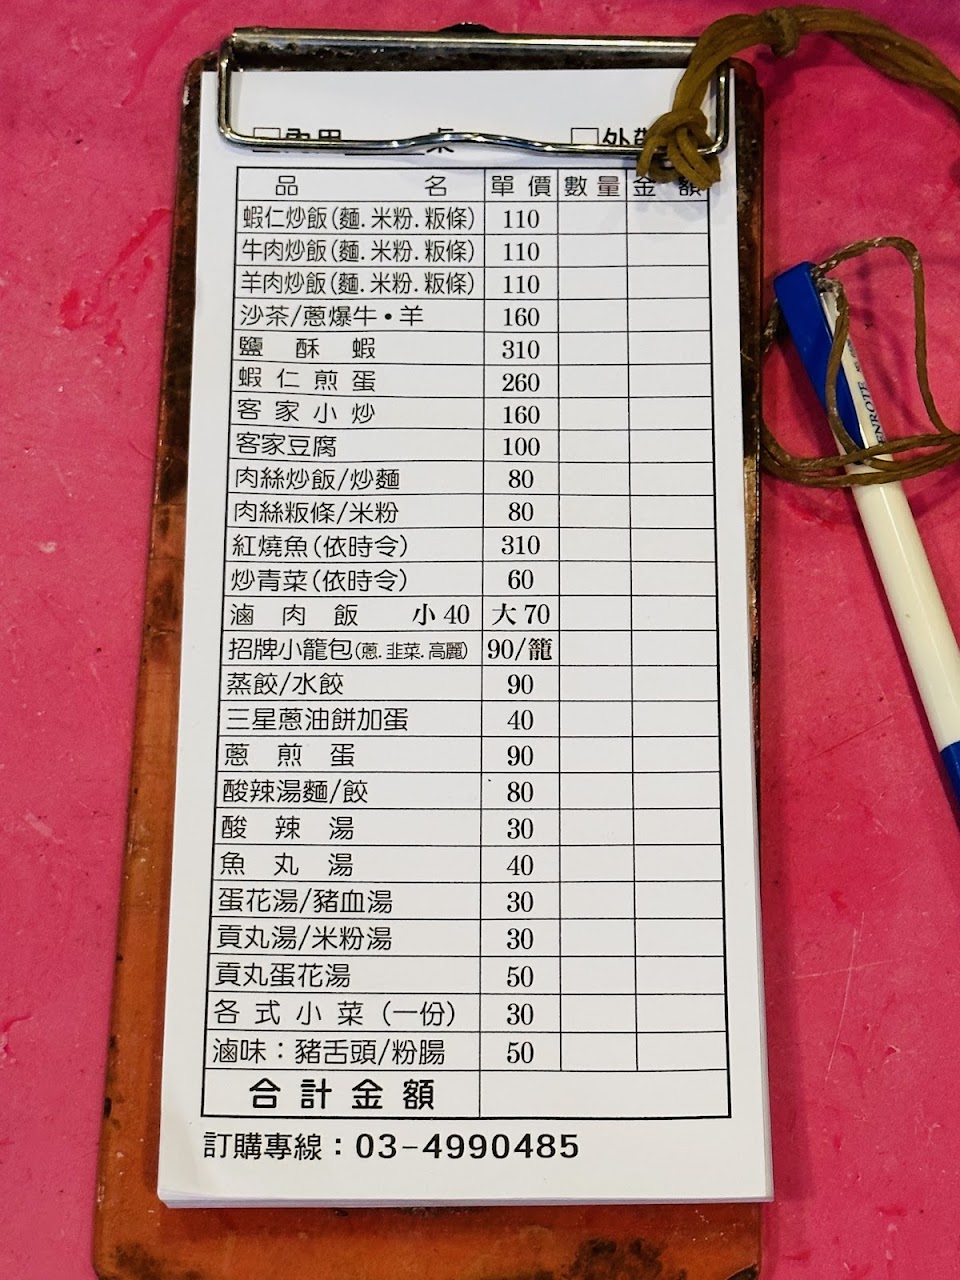 桌 □外帶
品名 單價 數量 金額
蝦仁炒飯(麵.米粉.粄條) 110
牛肉炒飯(麵.米粉.粄條) 110
羊肉炒飯(麵.米粉.粄條) 110
沙茶/蔥爆牛•羊 160
鹽酥蝦 310
蝦仁煎蛋 260
客家小炒 160
客家豆腐 100
肉絲炒飯/炒麵 80
肉絲粄條/米粉 80
紅燒魚(依時令) 310
炒青菜(依時令) 60
滷肉飯 小40 大70
招牌小籠包(蔥.韭菜.高麗) 90/籠
蒸餃/水餃 90
三星蔥油餅加蛋 40
蔥煎蛋 90
酸辣湯麵/餃 80
酸辣湯 30
魚丸湯 40
蛋花湯/豬血湯 30
貢丸湯/米粉湯 30
貢丸蛋花湯 50
各式小菜(一份) 30
滷味：豬舌頭/粉腸 50
合計金額
訂購專線：03-4990485